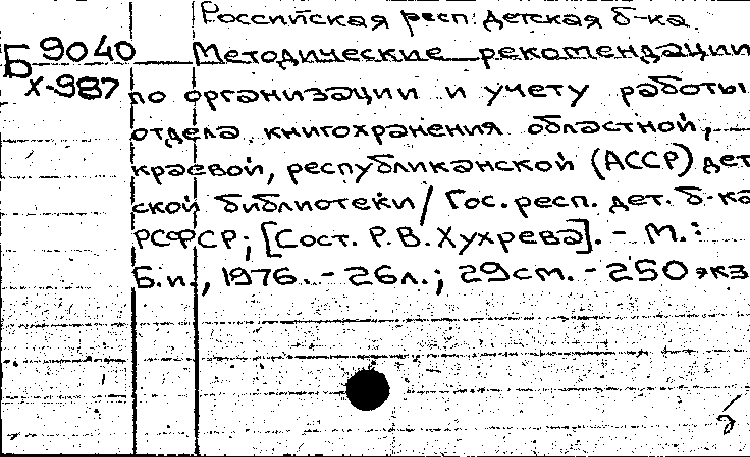 Российская респ. детская б-ка
Б 9040 Методические рекомендации
Х-987 по организации и учету работы
отдела книгохранения областной,
краевой, республиканской (АССР) дет
ской библиотеки / Гос. респ. дет. б-ка
РСФСР; [Сост. Р.В. Хухрева]. - М.:
Б.и., 1976. - 26л.; 29см. - 250 экз